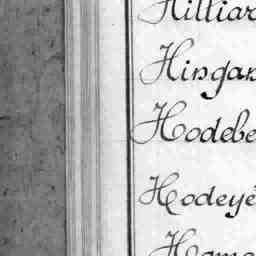 Hilliar
Hingan
Hodebe
Hodeyé
Hama